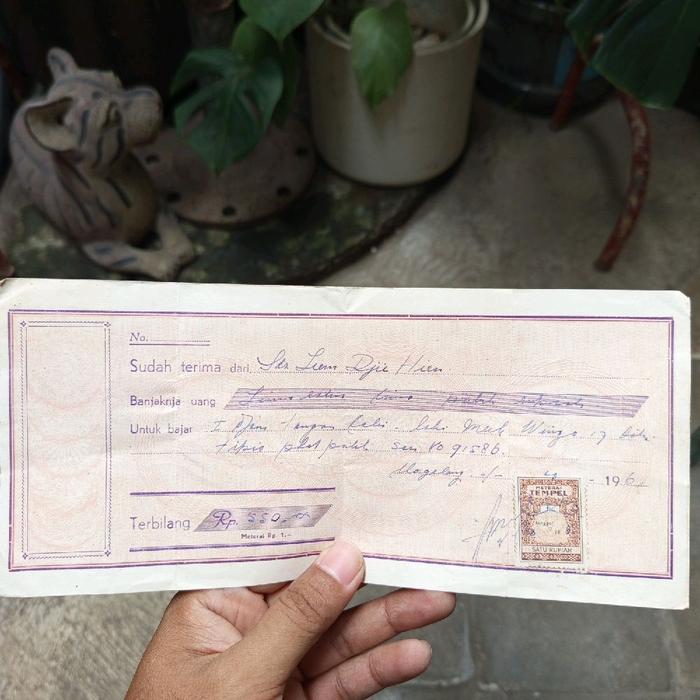 No.
Sudah terima dari, Sdr Liem Djie Hien
Banjaknja uang Lima ratus lima puluh rupiah
Untuk bajar I Djam tangan laki-laki Merk Wings 17 batu
tipis plat putih Seri No 91586.
Magelang
- 196
METERAI
TEMPEL
SATU RUPIAH
Terbilang Rp. 550.-
Meterai Rp. 1.-